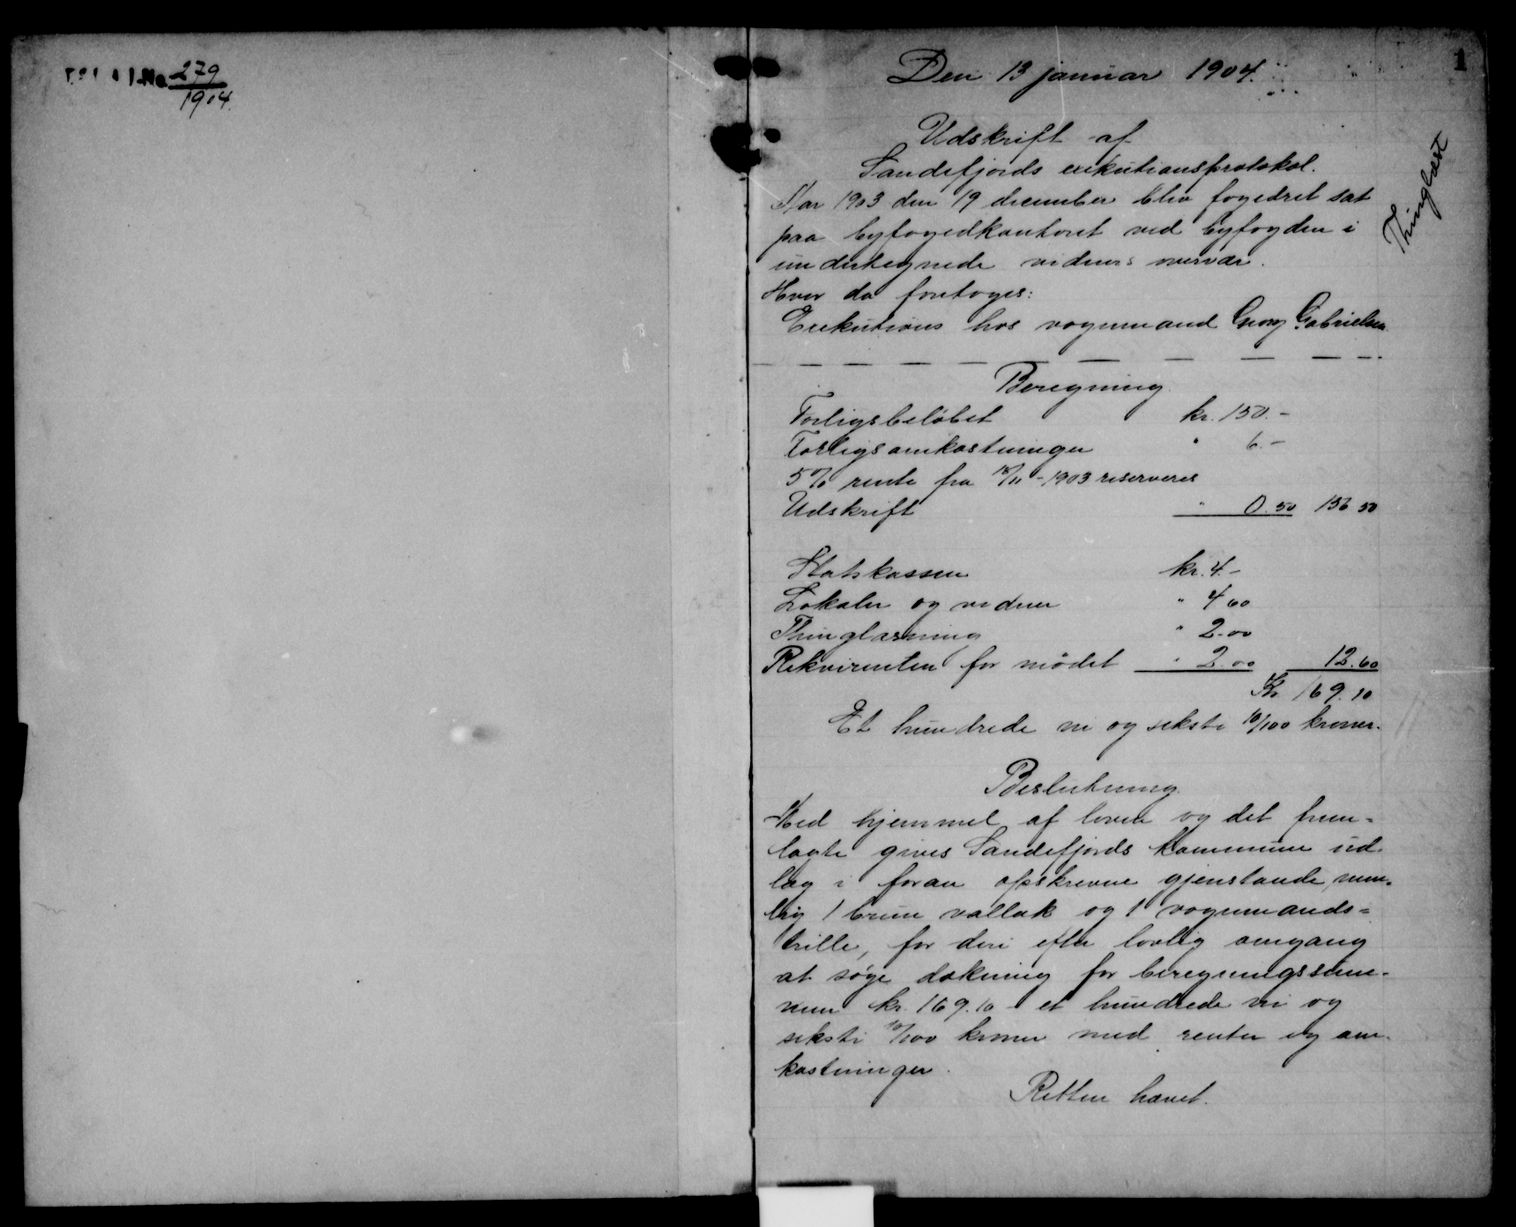 279
1904.
1
Den 13 januar 1904.
Thinglæst
Udskrift af
Sandefjords exekutionsprotokol.
Aar 1903 den 19 december blev fogedret sat
paa byfogedkontoret ved byfogden i
undertegnede vidners overvær.
Hvor da foretoges:
Exekutions hos vognmand Georg Gabrielsen
Beregning
Forligsbeløbet kr. 150.-
Forligsomkostninger " 6.-
5% rente fra /11-1903 reserveres
Udskrift " 0.50 156 50
Statskassen kr. 4.-
Lokaler og vidner " 4 60
Thinglæsning " 2.00
Rekvirenten for mødet " 2.00 12.60
Kr 169.10
Et hundrede ni og seksti 10/100 kroner.
Beslutning
Med hjemmel af loven og det frem-
lagte gives Sandefjords kommune ud-
læg i foran opskrevne gjenstande, nem-
lig 1 brun vallak og 1 vognmands-
trille, for deri efter lovlig omgang
at søge dækning for beregningssum-
men kr. 169.10 - et hundrede ni og
seksti 10/100 kroner med renter og om-
kostninger.
Retten hævet.